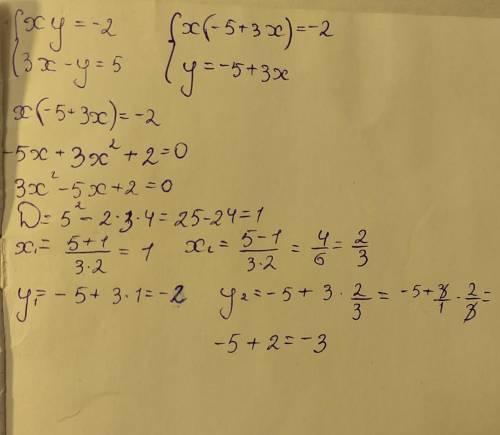 {xy = -2 {x(-5+3x)=-2
{3x-y=5 {y=-5+3x
x(-5+3x)=-2
-5x+3x²+2=0
3x²-5x+2=0
D=5²-2·3·4=25-24=1
x₁= (5+1)/(3·2) = 1 x₂= (5-1)/(3·2) = 4/6 = 2/3
y₁=-5+3·1=-2 y₂=-5+3·2/3 = -5+3/1·2/3=
-5+2=-3